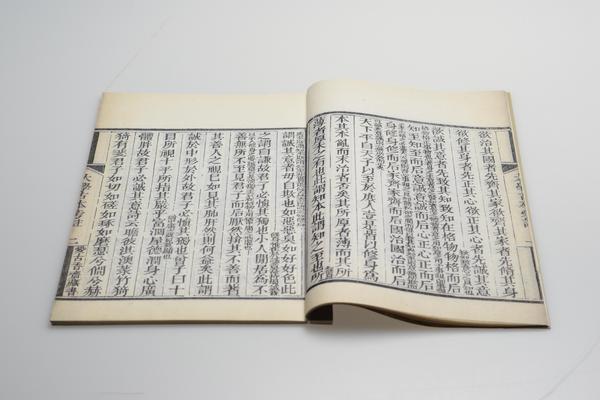 欲治其國者先齊其家欲齊其家者先脩其身
欲脩其身者先正其心欲正其心者先誠其意
欲誠其意者先致其知致知在格物物格而后
知至知至而后意誠意誠而后心正心正而后
身脩身脩而后家齊家齊而后國治國治而后
天下平自天子以至於庶人壹是皆以脩身為
本其本亂而末治者否矣其所厚者薄而其所
薄者厚未之有也此謂知本此謂知之至也所
謂誠其意者毋自欺也如惡惡臭如好好色此
之謂自謙故君子必慎其獨也小人閒居為不
善無所不至見君子而后厭然揜其不善而著
其善人之視己如見其肺肝然則何益矣此謂
誠於中形於外故君子必慎其獨也曾子曰十
目所視十手所指其嚴乎富潤屋德潤身心廣
體胖故君子必誠其意詩云瞻彼淇澳菉竹猗
猗有斐君子如切如磋如琢如磨瑟兮僩兮赫
大學古本旁註 二